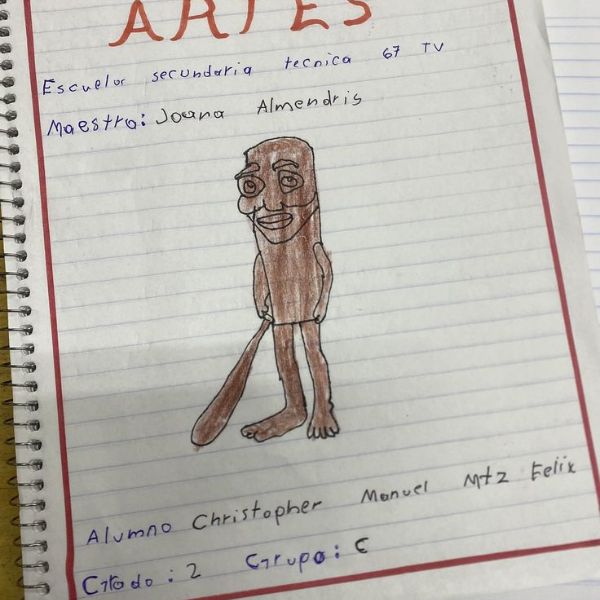 ARTES
Escuelar secundaria tecnica 67 TV
Maestro: Joana Almendris
Alumno Christopher Manuel Mtz Felix
Grado: 2 Grupo: C